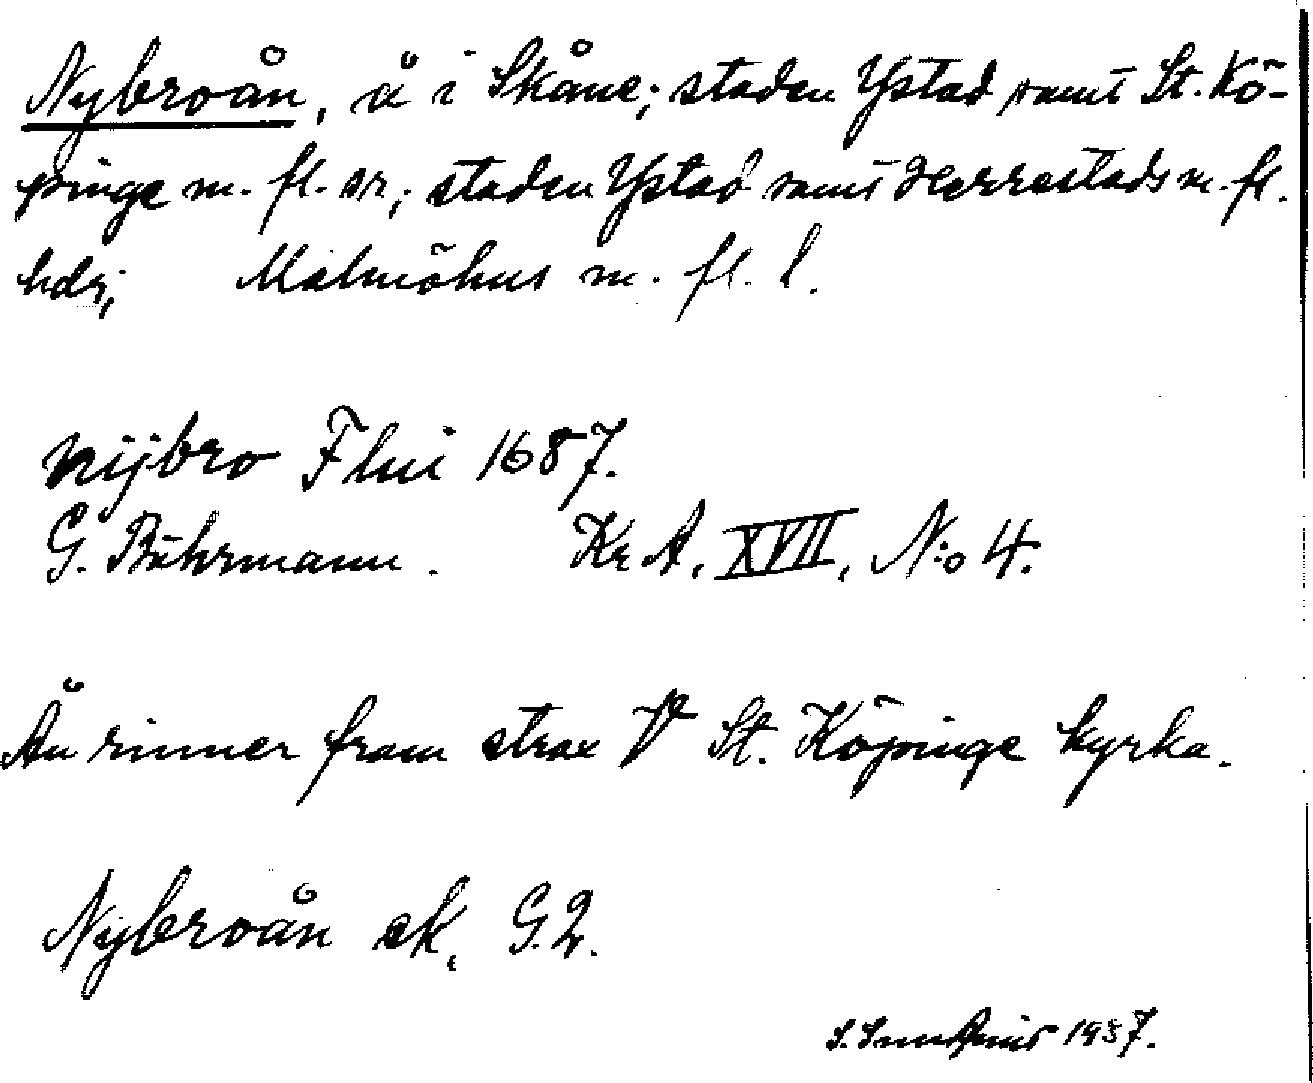 Nybroån, å i Skåne; staden Ystad samt St. Kö-
pinge m. fl. snr; staden Ystad samt Herrestads m. fl.
hdr; Malmöhus m. fl. l.
Nijbro Flui 1687.
G. Buhrmann. Kr A, XVII, N:o 4.
Ån rinner fram strax V St. Köpinge kyrka.
Nybroån ek. G.2.
1937.